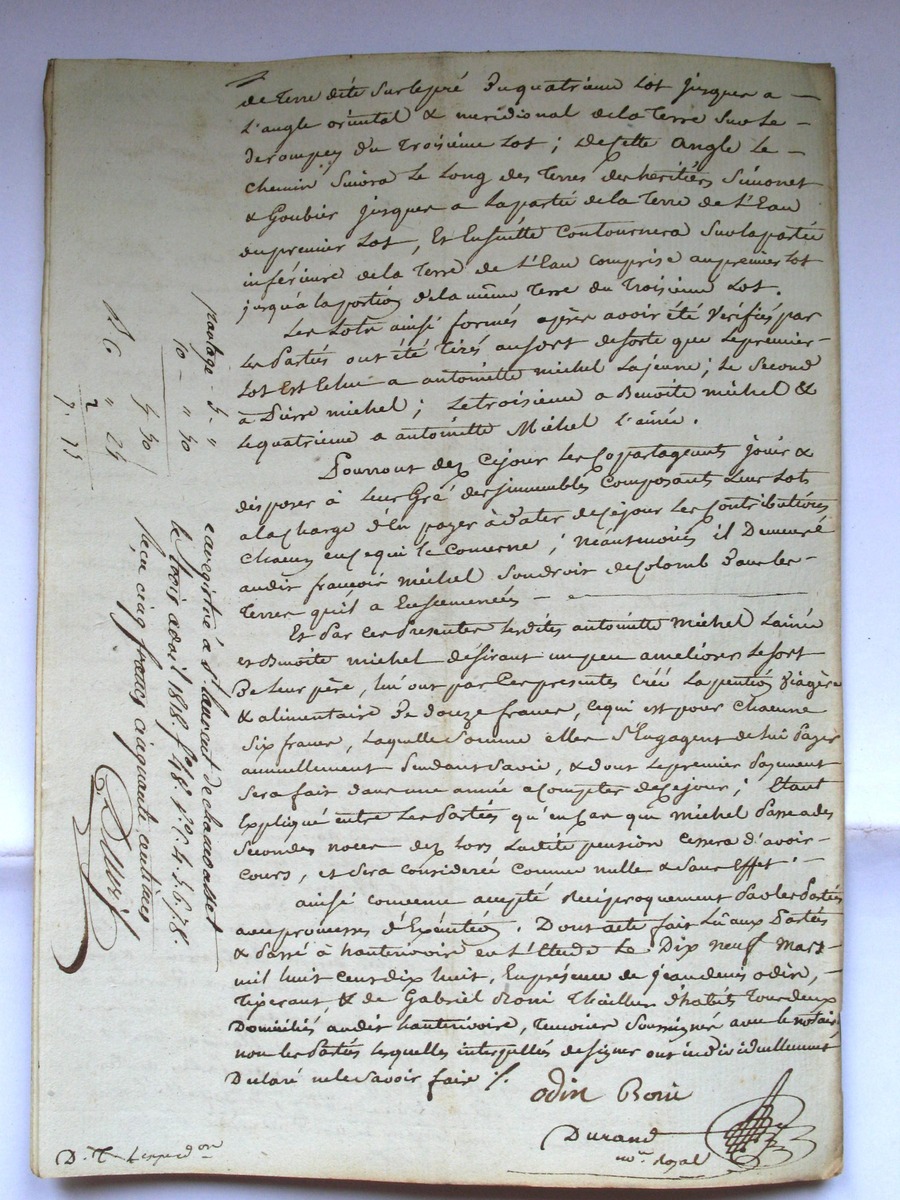 de Terre dite Sur le pré du quatrieme Lot jusques a
L'angle oriental & meridional de la Terre Sur Le
derompey du troisieme Lot ; de cette angle Le
chemin Suivra Le Long des Terres des héritiers Simonet
& Goubier jusques a La partie de la Terre de L'Eau
du premier Lot, Et Ensuitte Contournera Sur la partie
inférieure de la Terre de L'Eau Comprise au premier Lot
jusqu'a la portion de la même Terre du Troisieme Lot.
Les Lots ainsi formés après avoir été Vérifiés par
Les Parties ont été Tirés au sort de sorte que Le premier
Lot Est Echu a antoinette michel La jeune ; Le Second
à Pierre michel ; Le troisieme a Benoite michel &
Le quatrieme a antoinette Michel L'ainée.
Pourront dez ce jour Les Copartageants jouir &
disposer à Leur Gré des immeubles Composants Leur Lots
a la charge d'En payer à dater de ce jour Les Contributions
chacun en ce qui le Concerne ; néantmoins il Demeure
audit françois michel Son droit de Colomb dans les
Terres qu'il a Ensemencées
Et Par Ces Presentes Lesdites antoinette michel L'ainée
et Benoite michel désirant un peu ameliorer Le sort
De Leur père, lui ont par Ces presentes Créé La pention Viagère
& alimentaire De douze francs, Ce qui est pour chacune
Six francs, Laquelle Somme elles S'Engagent de lui Payer
annuellement Pendant Sa vie, & dont Le premier Payement
Sera fait dans une année a Compter de Ce jour ; Etant
Expliqué entre Les Parties qu'en Cas que michel Passe a des
Secondes noces dez Lors La dite pension Cessera d'avoir
Cours, et Sera Considerée Comme nulle & Sans Effet.
ainsi Convenu accepté Réciproquement Par les Parties
avec promesses d'Exécution. Dont acte fait Lu aux Parties
& Passé à hauterivoire en L'Etude Le Dix neuf Mars
mil huit Cent dix huit, En presence de jean denis odin,
Tixerant, & de Gabriel Roni Thailleur d'habits Tous deux
Domiciliés audit hauterivoire, Temoins Soussignés avec le notaire
non les Parties lesquelles interpellées de signer ont individuellement
Declaré ne le Savoir faire /.
odin Roni
Durand
no.re royal
partage 5 "
10 " 50
5 50
D C " 25
2
7. 75
enregistré à St Laurent de chamousset
le trois avril 1818 fo 48. Vo C. 4. 5. 6. 7. 8.
Reçu cinq francs cinquante centimes